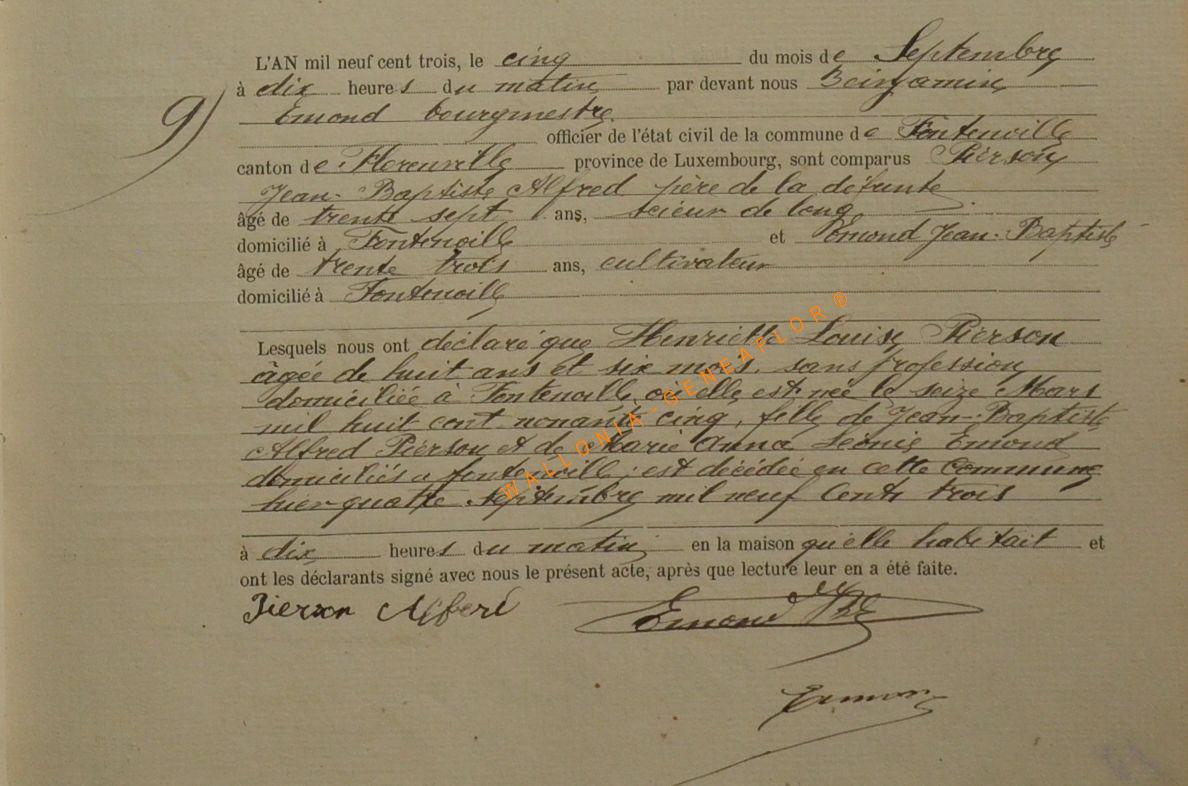 9)
L'AN mil neuf cent trois, le cinq du mois de Septembre
à dix heures du matin par devant nous Beinjamin
Emond bourgmestre
officier de l'état civil de la commune de Fontenoille
canton de Florenville province de Luxembourg, sont comparus Pierson
Jean-Baptiste Alfred père de la défunte
âgé de trente sept ans, scieur de long
domicilié à Fontenoille et Emond Jean-Baptiste
âgé de trente trois ans, cultivateur
domicilié à Fontenoille
Lesquels nous ont déclaré que Henriette Louise Pierson
âgée de huit ans et six mois, sans profession
domiciliée à Fontenoille, où elle est née le seize Mars
mil huit cent nonante cinq, fille de Jean-Baptiste
Alfred Pierson et de Marie Anna Leonie Emond
domiciliés a fontenoille; est décédée en cette Commune
hier quatre Septembre mil neuf Cent trois
à dix heures du matin en la maison qu'elle habitait et
ont les déclarants signé avec nous le présent acte, après que lecture leur en a été faite.
Pierson Alfred Emond JB
Emond
WALLONIA-GENEAFLOR®